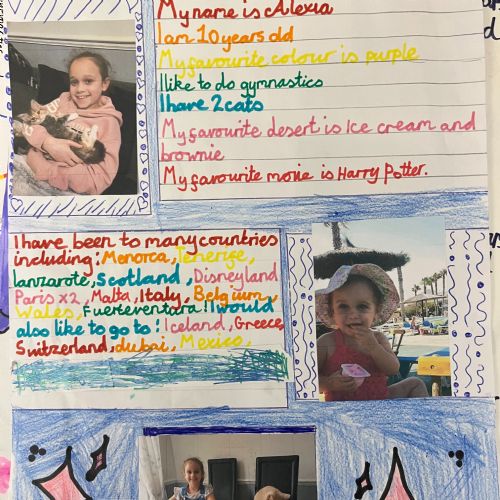 My name is Alexia
I am 10 years old
My favourite colour is purple
I like to do gymnastics
I have 2 cats
My favourite desert is Ice cream and
brownie
My favourite movie is Harry Potter.
I have been to many countries
including: Menorca, Tenerife,
lanzarote, Scotland, Disneyland
Paris x2, Malta, Italy, Belgium,
Wales, Fuerteventara. I would
also like to go to: Iceland, Greece,
Switzerland, dubai, Mexico,